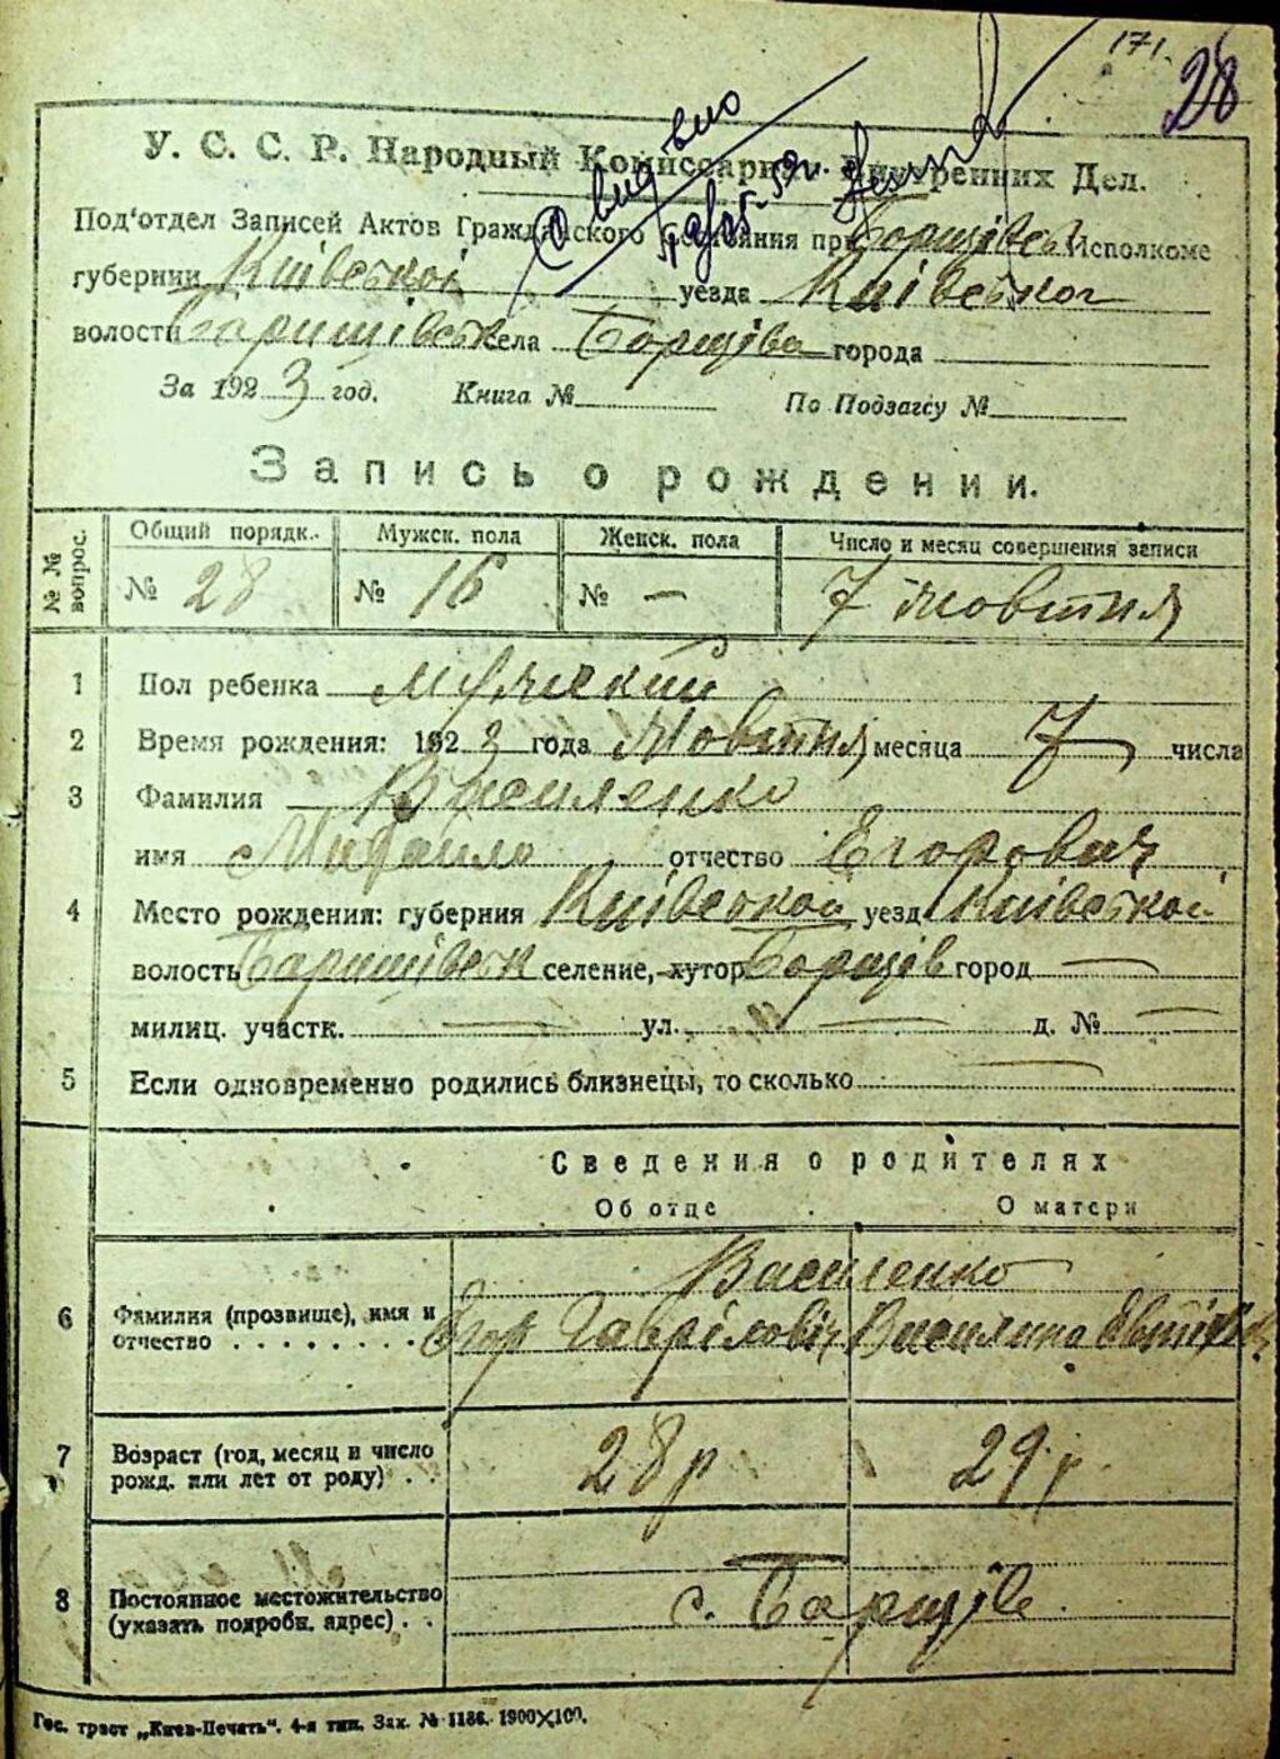 171.
28
У. С. С. Р. Народный Комиссариат Внутренних Дел.
Под‘отдел Записей Актов Гражданского Состояния при Борщівск Исполкоме
губернии Київської уезда Київської
волости Баришівськ села Борщіва города
За 1923 год. Книга № По Подзагсу №
Запись о рождении.
№№ вопрос.
Общий порядк. Мужск. пола Женск. пола Число и месяц совершения записи
№ 28 № 16 № — 7 жовтня
1 Пол ребенка мужский
2 Время рождения: 1923 года Жовтня месяца 7 числа
3 Фамилия Василенко
имя Михайло отчество Егорович
4 Место рождения: губерния Київської уезд Київської
волость Баришівськ селение, хутор Борщів город —
милиц. участк. — ул. — д. № —
5 Если одновременно родились близнецы, то сколько —
Сведения о родителях
Об отце О матери
Василенко
6 Фамилия (прозвище), имя и
отчество . . . . . . . . Єгор Гаврілович Василина
7 Возраст (год, месяц и число 28 р 29 р.
рожд. или лет от роду) . .
8 Постоянное местожительство с. Борщів.
(указать подробн. адрес) . .
Гос. трест „Киев-Печать“. 4-я тип. Зак. № 1186. 1900×100.